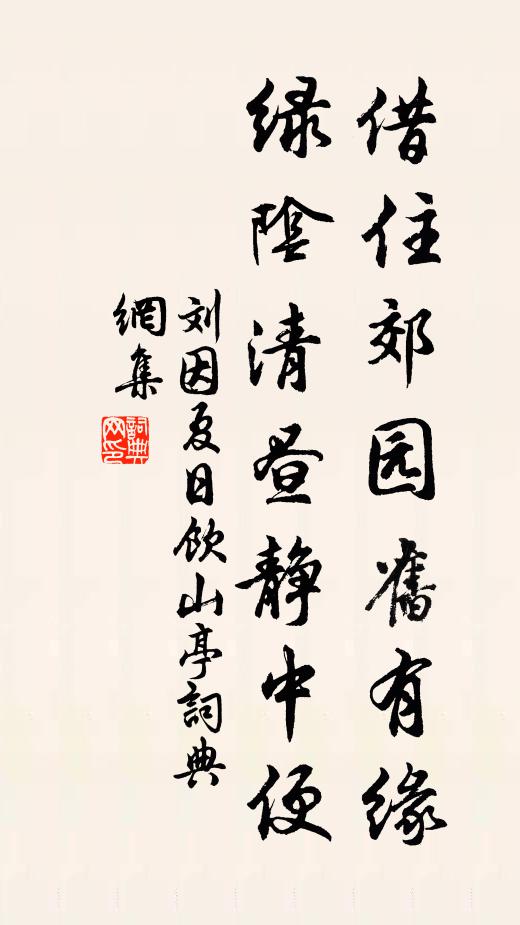 借住郊园舊有缘
绿陰清昼静中便
刘因夏日饮山亭詞典
網集
詞典网印